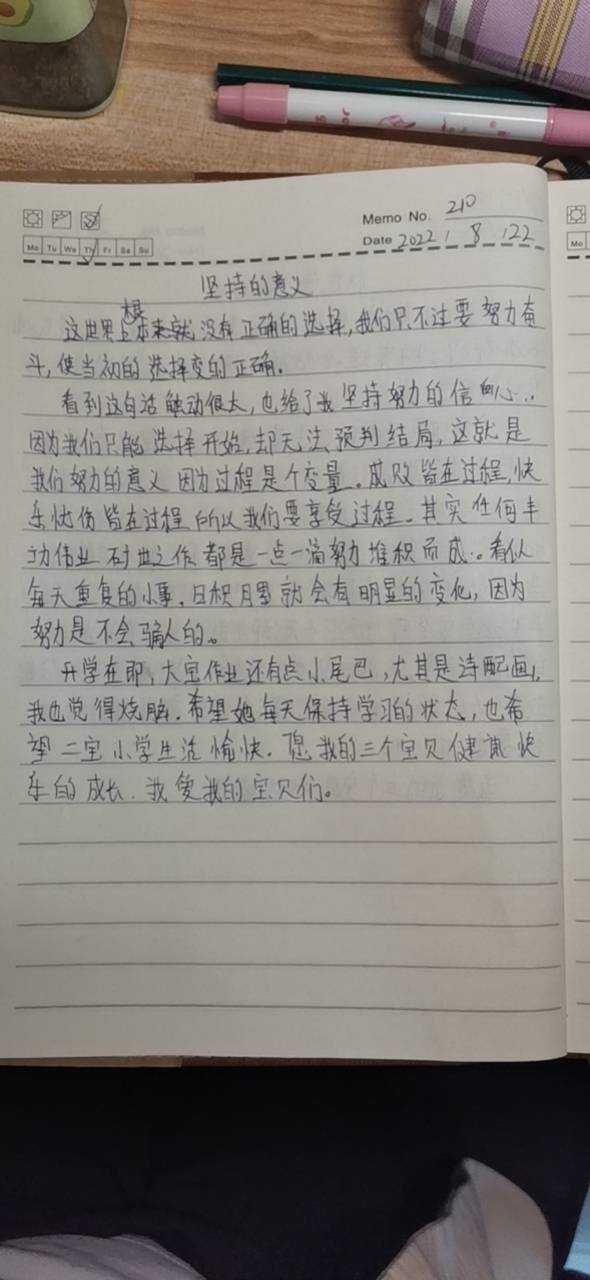 Memo No. 210
Mo Tu We Th Fr Sa Su
Date 2022 / 8 / 22
坚持的意义
这世界上根本就没有正确的选择,我们只不过要努力奋
斗,使当初的选择变的正确.
看到这句话触动很大,也给了我坚持努力的信心..
因为我们只能选择开始,却无法预判结局,这就是
我们努力的意义因为过程是个变量.成败皆在过程,快
乐忧伤皆在过程所以我们要享受过程.其实任何丰
功伟业 之作都是一点一滴努力堆积而成.。看似
每天重复的小事.日积月累就会有明显的变化,因为
努力是不会骗人的。
开学在即,大宝作业还有点小尾巴,尤其是诗配画,
我也觉得烧脑.希望她每天保持学习的状态,也希
望二宝小学生活愉快.愿我的三个宝贝健康快
乐的成长.我爱我的宝贝们。
Mo